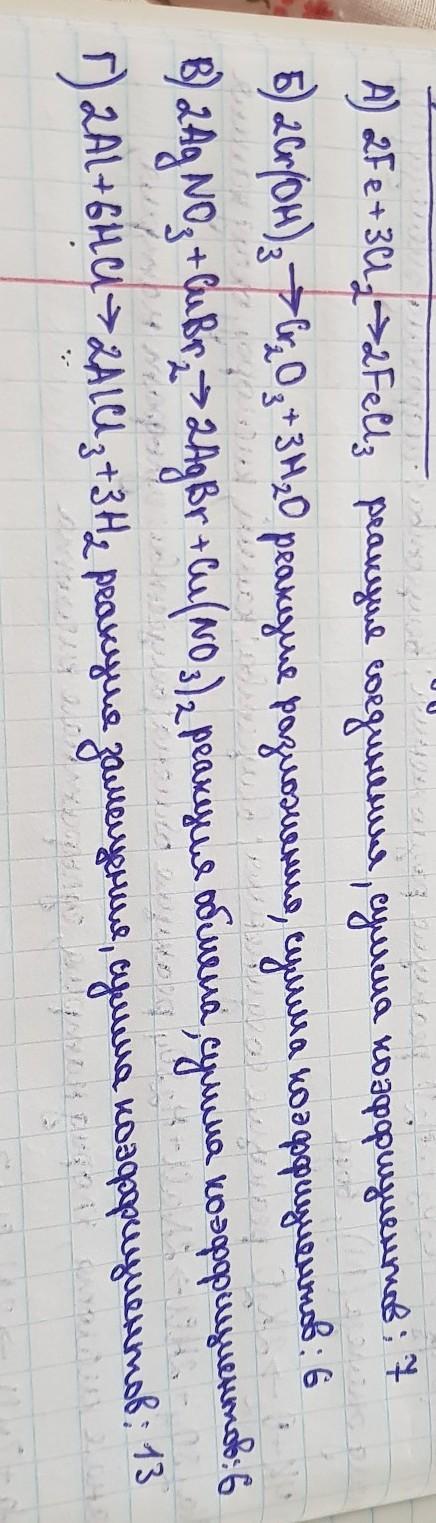 А) 2Fe + 3Cl₂ → 2FeCl₃ реакция соединения, сумма коэффициентов: 7
Б) 2Cr(OH)₃ → Cr₂O₃ + 3H₂O реакция разложения, сумма коэффициентов: 6
В) 2AgNO₃ + CuBr₂ → 2AgBr + Cu(NO₃)₂ реакция обмена, сумма коэффициентов: 6
Г) 2Al + 6HCl → 2AlCl₃ + 3H₂ реакция замещения, сумма коэффициентов: 13